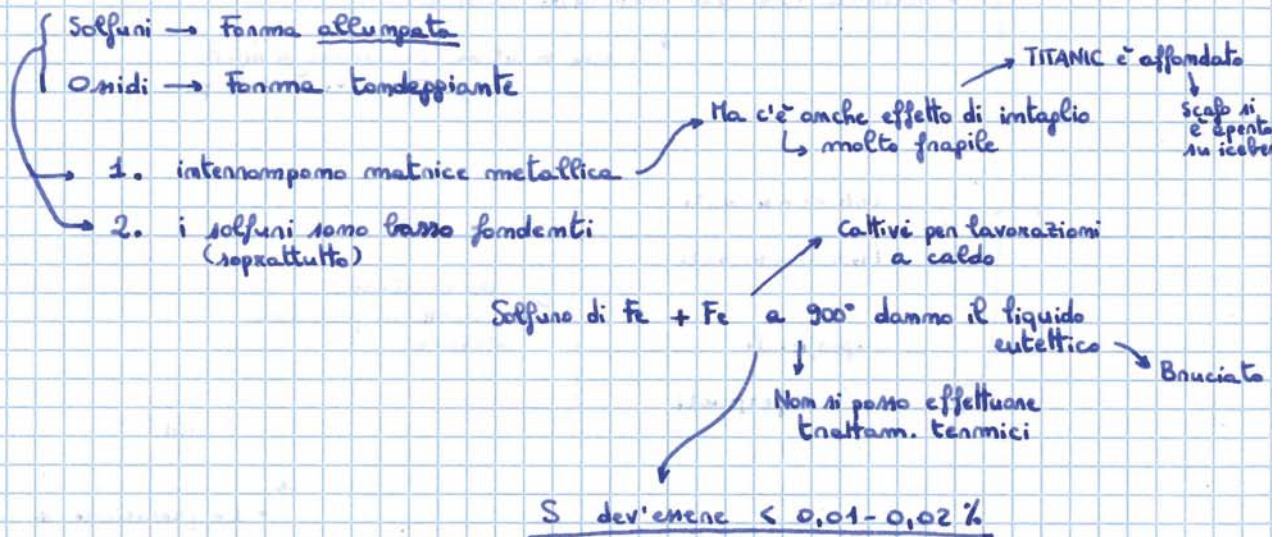 Solfuri → Forma allungata
Ossidi → Forma tondeggiante
1. interrompono matrice metallica
Ma c'è anche effetto di intaglio
↳ molto fragile
TITANIC è affondato
↓
scafo si
è aperto
su iceber
2. i solfuri sono basso fondenti
(soprattutto)
Cattivi per lavorazioni
a caldo
Solfuro di Fe + Fe a 900° danno il liquido
eutettico
Bruciato
Non si posso effettuare
trattam. termici
S dev'essere < 0,01-0,02 %